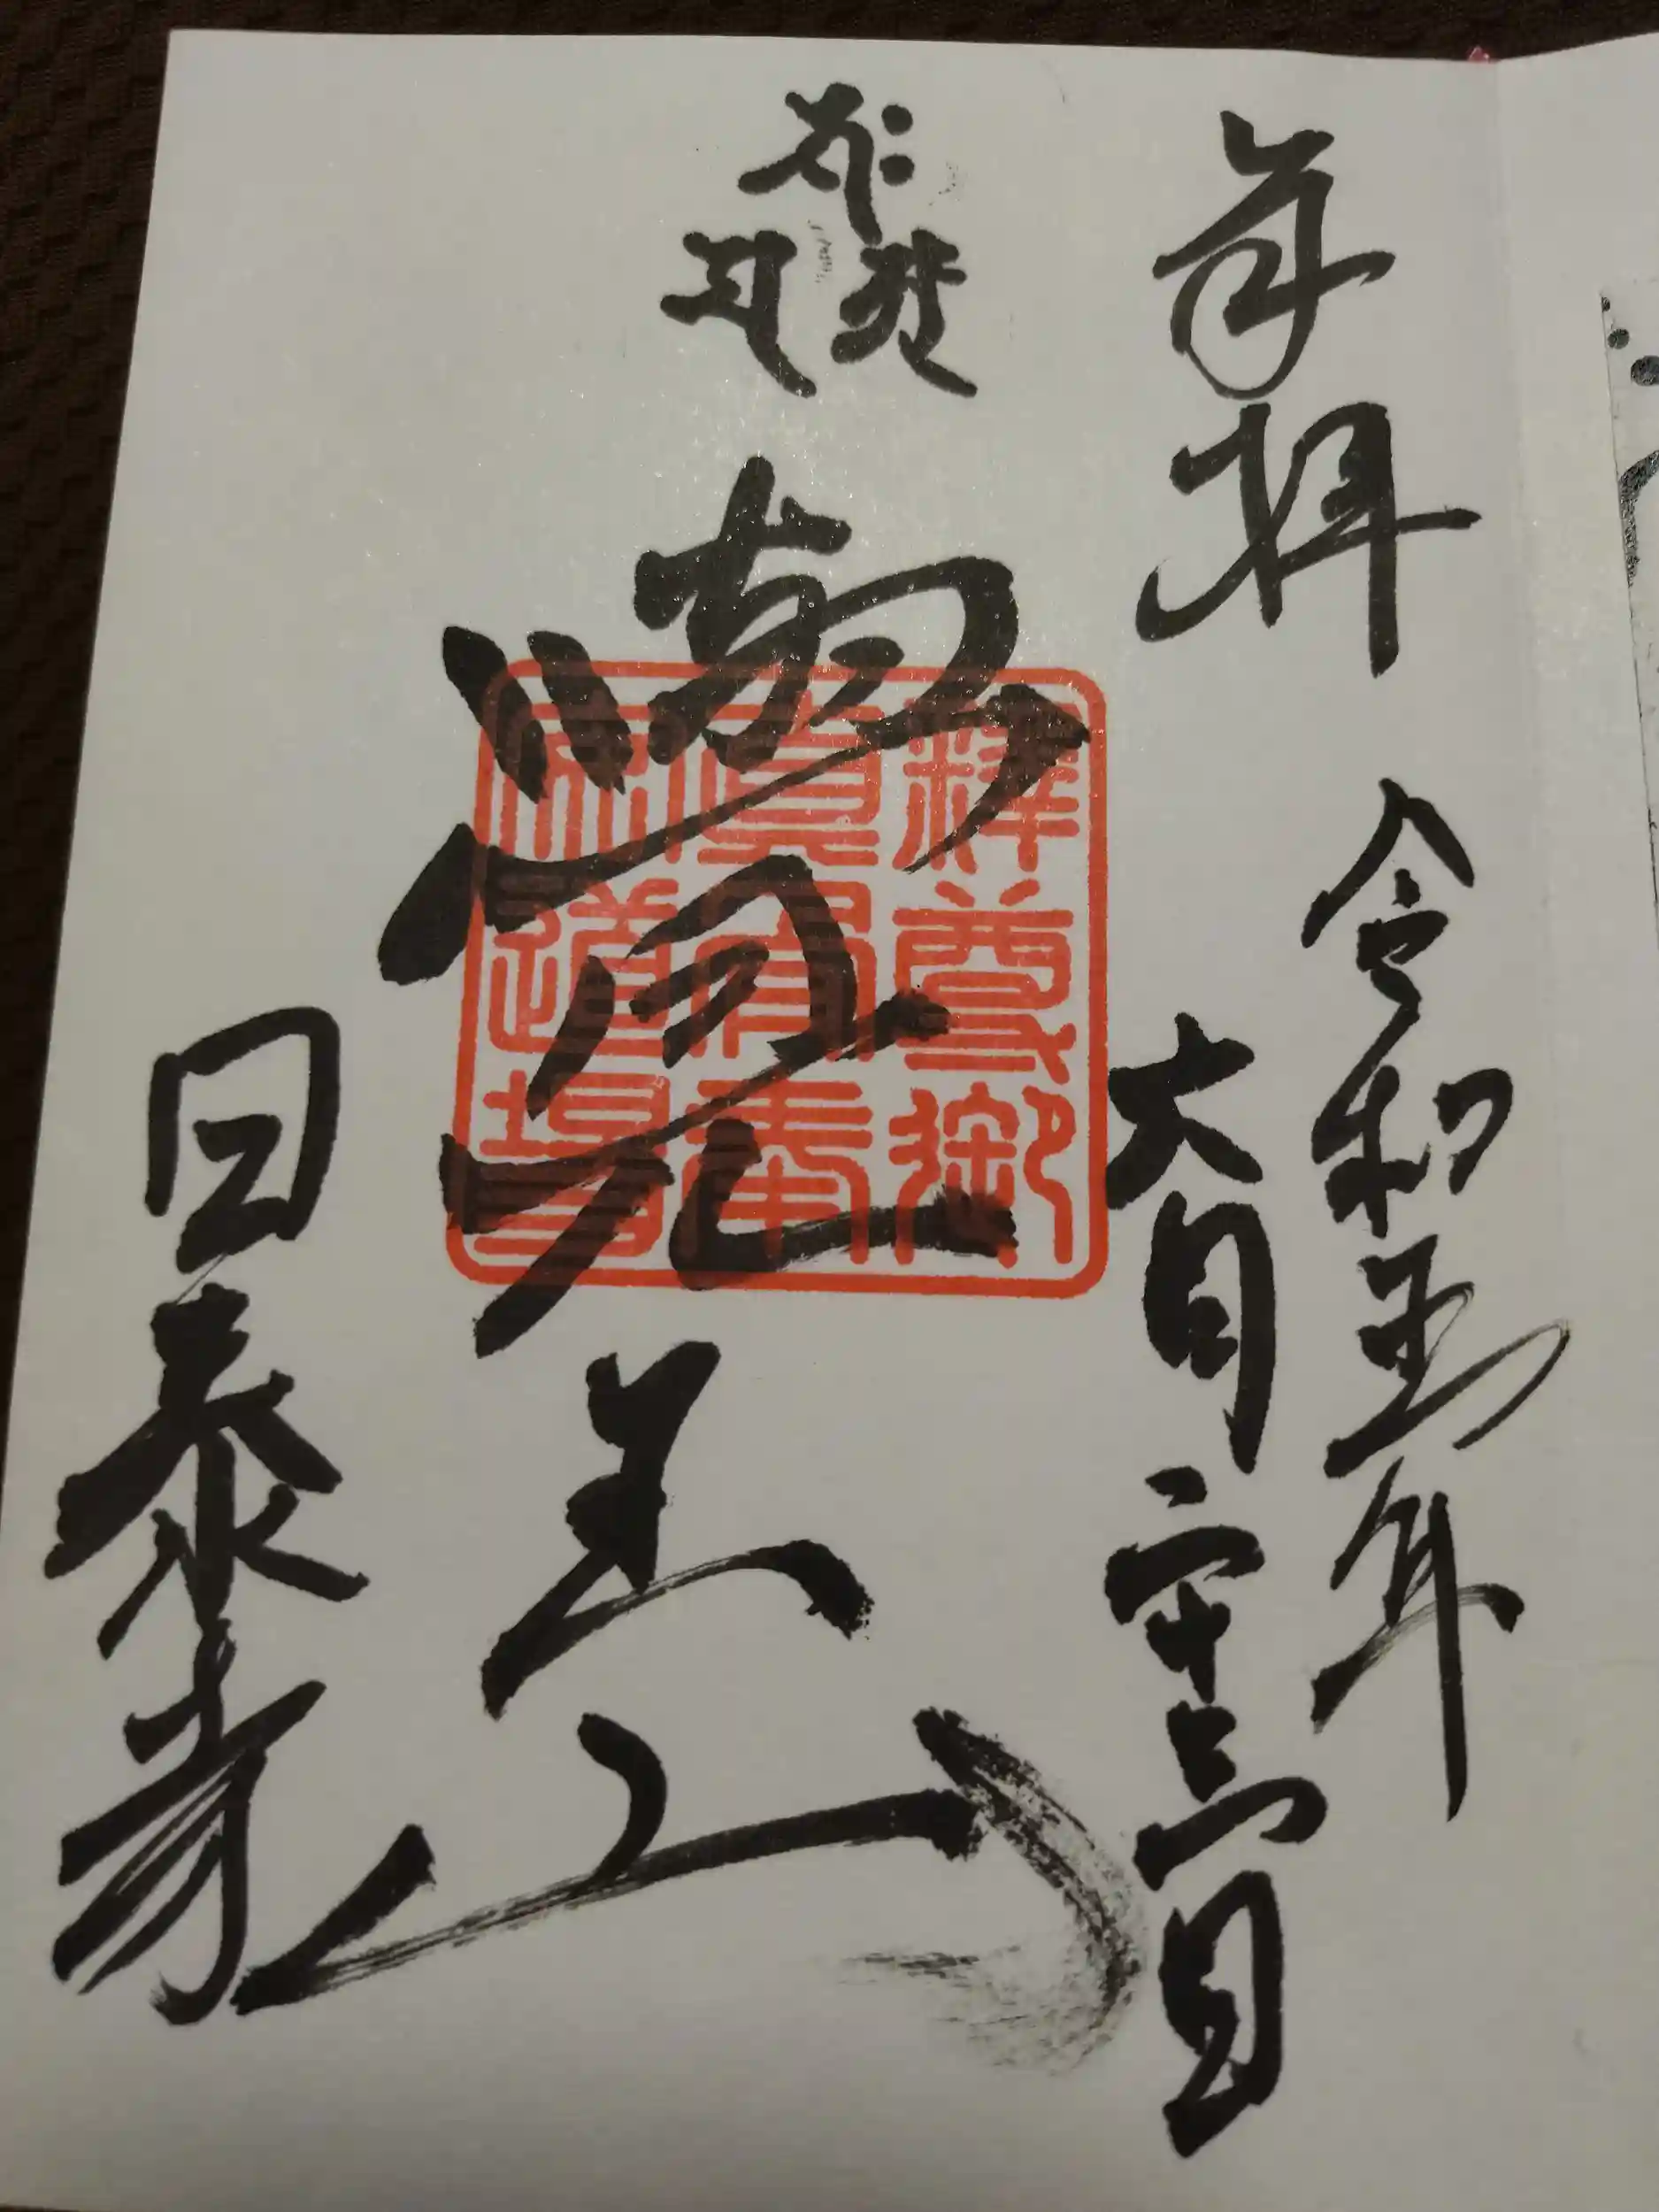 奉拝
令和五年
六月二十六日
覺王山
日泰寺
釋尊御
真骨奉
安道場